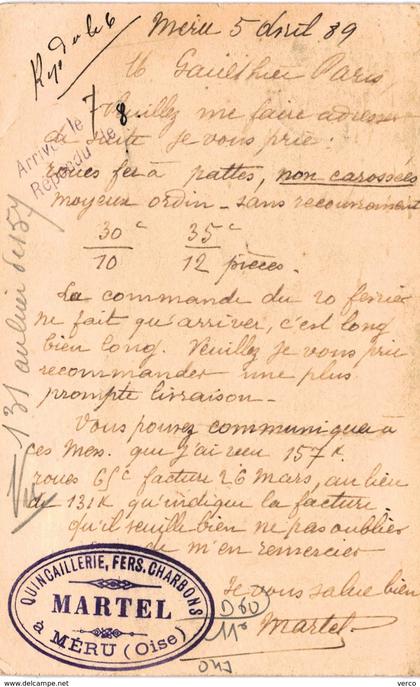 Méru 5 Avril 89
Rep. du le 6
M Gaulthier Paris,
Veuillez me faire adresser
de suite je vous prie:
Arrivé le 7
Répondu le 8
roues fer à pattes, non carossées
moyeux ordin - sans recouvrement
30c 35c
10 12 pièces.
La commande du 20 février
ne fait qu'arriver, c'est long
bien long. Veuillez je vous prie
recommander une plus
prompte livraison -
131 au lieu de 157
Vous pouvez communiquer à
ces Mes. que j'ai reçu 157 K.
roues 65c facture 26 Mars, au lieu
de 131K qu'indique la facture
qu'il veuille bien ne pas oublier
de m'en remercier
Je vous salue bien
Martel
QUINCAILLERIE, FERS, CHARBONS
MARTEL
à MÉRU (Oise)
www.delcampe.net
verco